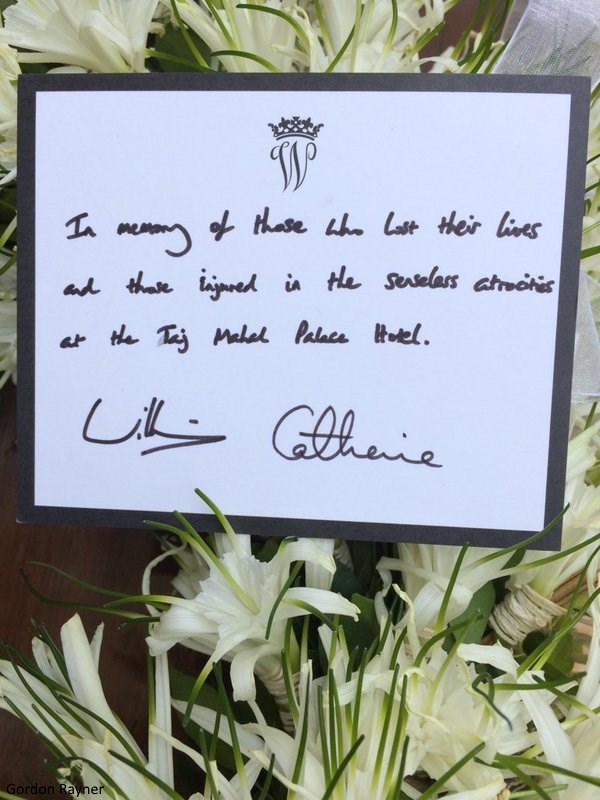 W
In memory of those who lost their lives
and those injured in the senseless atrocities
at the Taj Mahal Palace Hotel.
William Catherine
Gordon Rayner